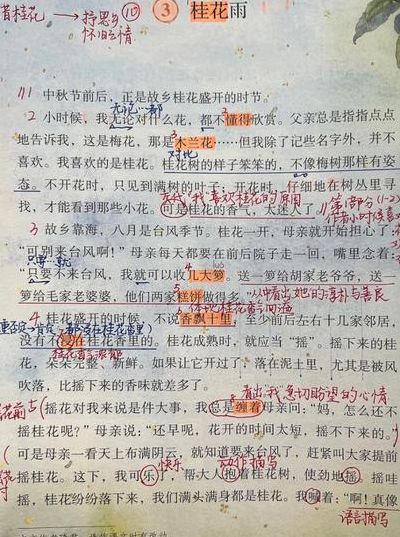 借桂花 → 抒思乡 ⑩
怀旧之情
③ 桂花雨
中秋节前后，正是故乡桂花盛开的时节。
无论…都
2 小时候，我无论对什么花，都不懂得欣赏。父亲总是指指点点
地告诉我，这是梅花，那是木兰花……但我除了记些名字外，并不
喜欢。我喜欢的是桂花。桂花树的样子笨笨的，不像梅树那样有姿
态。不开花时，只见到满树的叶子；开花时，仔细地在树丛里寻
我喜欢桂花的原因
找，才能看到那些小花。可是桂花的香气，太迷人了。
第1部分(1-2)
3 故乡靠海，八月是台风季节。桂花一开，母亲就开始担心了：
“可别来台风啊！”母亲每天都要在前后院子走一回，嘴里念着：
只要…就
“只要不来台风，我就可以收几大箩。送一箩给胡家老爷爷，送一
箩给毛家老婆婆，他们两家糕饼做得多。”
4 桂花盛开的时候，不说香飘十里，至少前后左右十几家邻居，
没有不浸在桂花香里的。桂花成熟时，就应当“摇”。摇下来的桂
桂花香浓郁
花，朵朵完整、新鲜。如果让它开过了，落在泥土里，尤其是被风
吹落，比摇下来的香味就差多了。
看出我急切盼望的心情
摇花对我来说是件大事，我总是缠着母亲问：“妈，怎么还不
摇桂花呢？”母亲说：“还早呢，花开的时间太短，摇不下来的。”
可是母亲一看天上布满阴云，就知道要来台风了，赶紧叫大家提前
快乐
动作描写
摇桂花。这下，我可乐了，帮大人抱着桂花树，使劲地摇。摇哇
摇，桂花纷纷落下来，我们满头满身都是桂花。我喊着：“啊！真像
语言描写